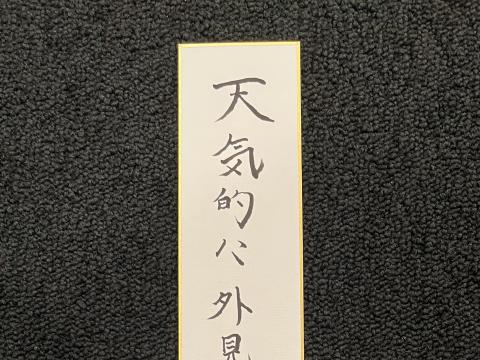 天気的ハ外見